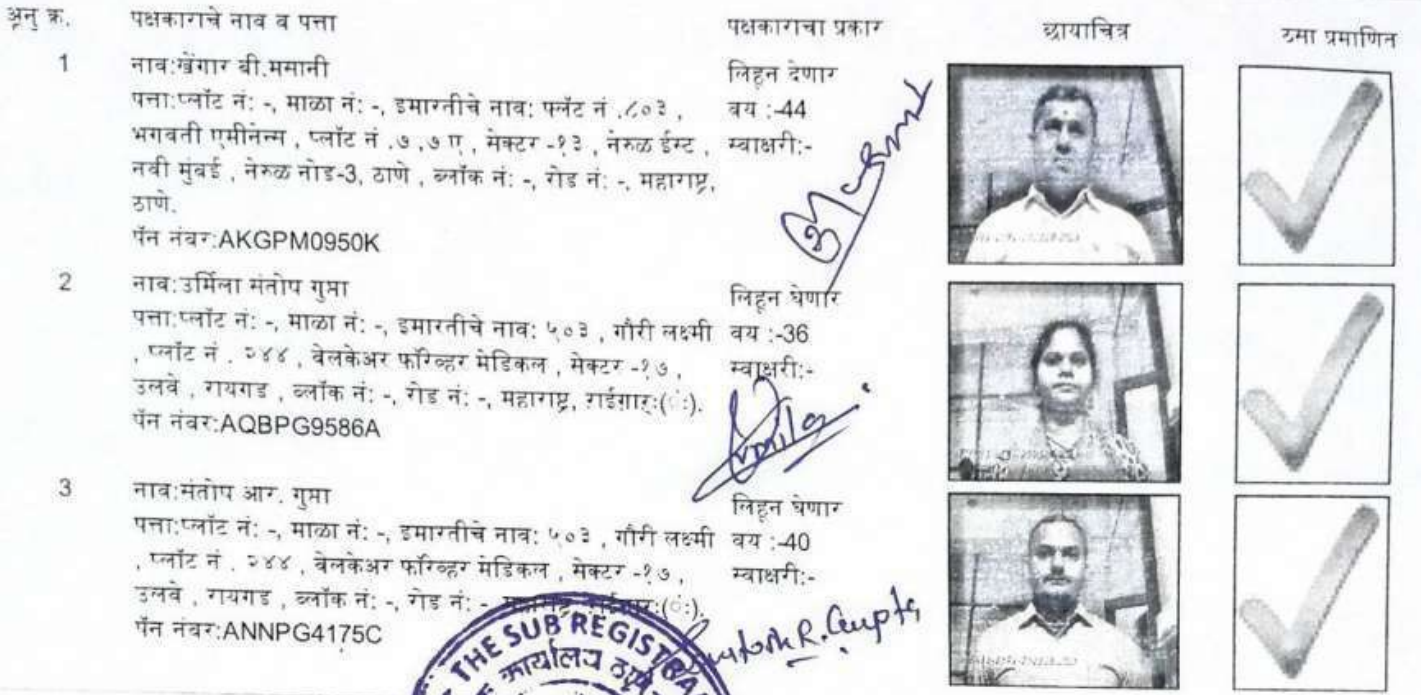 अनु क्र. पक्षकाराचे नाव व पत्ता पक्षकाराचा प्रकार छायाचित्र ठसा प्रमाणित
1 नाव:खेंगार बी.मसानी
पत्ता:प्लॉट नं: -, माळा नं: -, इमारतीचे नाव: फ्लॅट नं .८०३ ,
भगवती एमीनेन्स , प्लॉट नं .७ ,७ ए , सेक्टर -१३ , नेरुळ ईस्ट ,
नवी मुंबई , नेरुळ नोड-3, ठाणे , ब्लॉक नं: -, रोड नं: -, महाराष्ट्र,
ठाणे.
पॅन नंबर:AKGPM0950K
लिहून देणार
वय :-44
स्वाक्षरी:-
2 नाव:उर्मिला संतोष गुप्ता
पत्ता:प्लॉट नं: -, माळा नं: -, इमारतीचे नाव: ५०३ , गौरी लक्ष्मी
, प्लॉट नं . २४४ , वेलकेअर फॉरेव्हर मेडिकल , सेक्टर -१७ ,
उलवे , रायगड , ब्लॉक नं: -, रोड नं: -, महाराष्ट्र, राईगार्:(ं:).
पॅन नंबर:AQBPG9586A
लिहून घेणार
वय :-36
स्वाक्षरी:-
Urmila
3 नाव:संतोष आर. गुप्ता
पत्ता:प्लॉट नं: -, माळा नं: -, इमारतीचे नाव: ५०३ , गौरी लक्ष्मी
, प्लॉट नं . २४४ , वेलकेअर फॉरेव्हर मेडिकल , सेक्टर -१७ ,
उलवे , रायगड , ब्लॉक नं: -, रोड नं: -, महाराष्ट्र, राईगार्:(ं:).
पॅन नंबर:ANNPG4175C
लिहून घेणार
वय :-40
स्वाक्षरी:-
Santosh R. Gupta
THE SUB REGISTRAR
कार्यालय